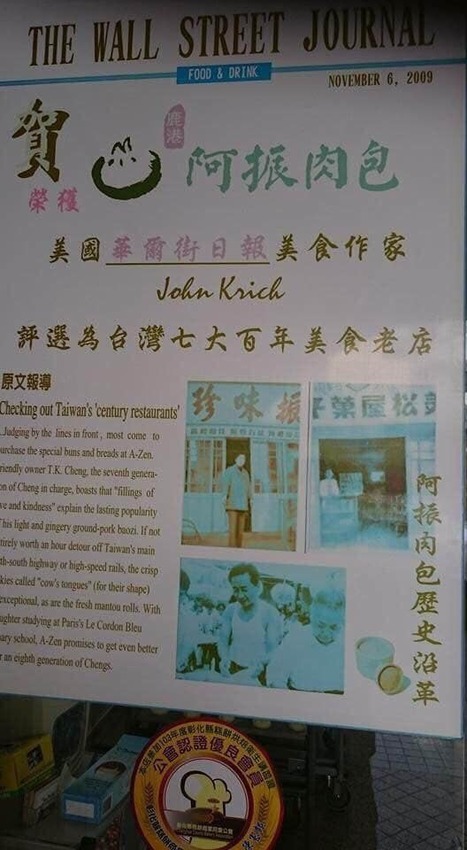 THE WALL STREET JOURNAL
FOOD & DRINK
NOVEMBER 6, 2009
賀
榮獲
鹿港
阿振肉包
美國華爾街日報美食作家
John Krich
評選為台灣七大百年美食老店
原文報導
Checking out Taiwan's 'century restaurants'
Judging by the lines in front, most come to
urchase the special buns and breads at A-Zen.
riendly owner T.K. Cheng, the seventh genera-
on of Cheng in charge, boasts that "fillings of
ve and kindness" explain the lasting popularity
his light and gingery ground-pork baozi. If not
tirely worth an hour detour off Taiwan's main
th-south highway or high-speed rails, the crisp
kies called "cow's tongues" (for their shape)
exceptional, as are the fresh mantou rolls. With
ughter studying at Paris's Le Cordon Bleu
ary school, A-Zen promises to get even better
r an eighth generation of Chengs.
珍味振
松屋菓子
阿振肉包歷史沿革
公會認證優良會員